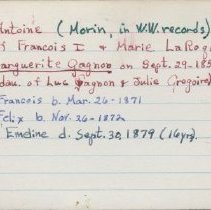 Antoine (Morin, in W.W. records)
Francois I & Marie LaRoq
Marguerite Gagnon on Sept. 29-185
dau. of Luc Gagnon & Julie Gregoire
Francois b. Mar. 26-1871
Felix b. Nov. 26-1872
Emeline d. Sept. 30, 1879 (16yrs)